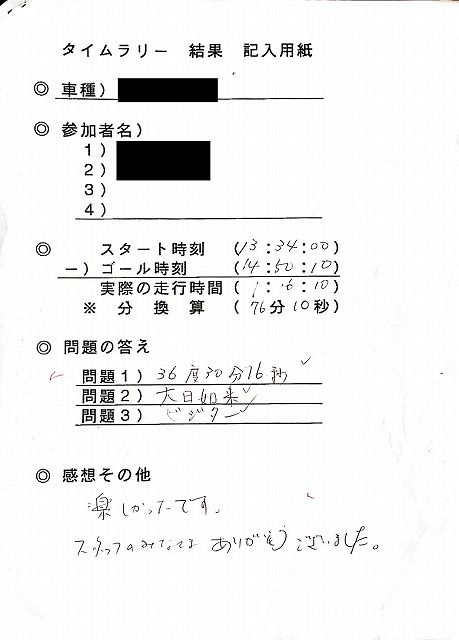 タイムラリー 結果 記入用紙
◎ 車種)
◎ 参加者名)
1)
2)
3)
4)
◎ スタート時刻 (13:34:00)
ー)ゴール時刻 (14:50:10)
実際の走行時間(1:16:10)
※ 分 換 算 (76分10秒)
◎ 問題の答え
問題1) 36度30分16秒
問題2) 大日如来
問題3) ビジター
◎ 感想その他
楽しかったです。
スタッフのみなさま ありがとうございました。